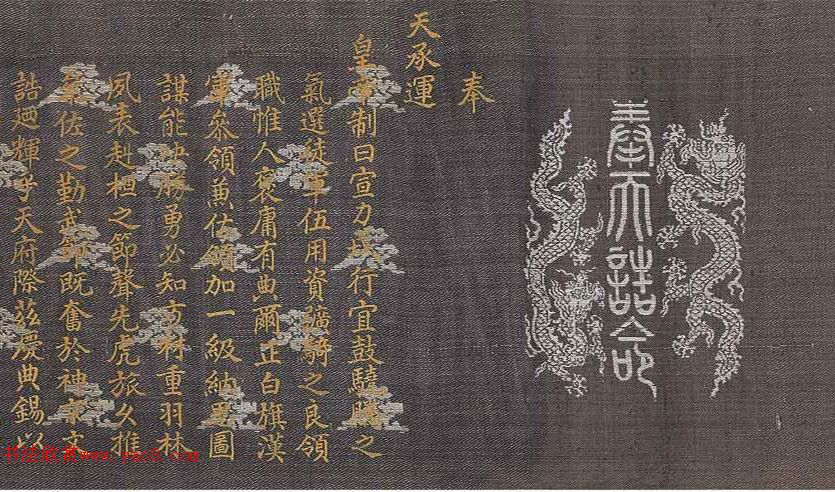 奉天誥命
奉
天承運
皇帝制曰宣力戎行宜鼓驍騰之
氣選徒軍伍用資彍騎之良領
職惟人褒庸有典爾正白旗漢
軍叅領兼佐領加一級納圖
謀能決勝勇必知方材重羽林
夙表赳桓之節聲先虎旅久推
佐之勤武既奮於神京文
誥廼輝乎天府際茲慶典錫以
书法欣赏www.yac8.com